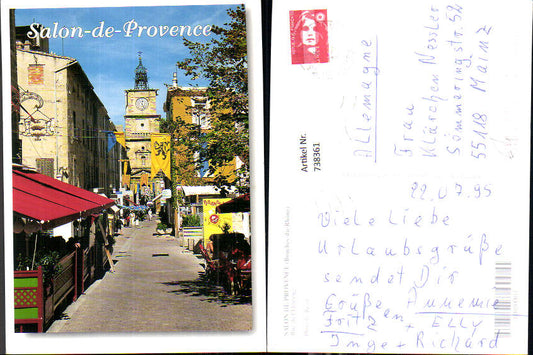 Salon-de-Provence
Artikel Nr.
738361
Allemagne
Frau
Klärchen Nessler
Sömmeringstr. 52
55118 Mainz
22.07.95
Viele liebe
Urlaubsgrüße
sendet Dir
Grüße Annemie
Fritz + Elly
Inge + Richard
SALON-DE-PROVENCE (Bouches-du-Rhône)